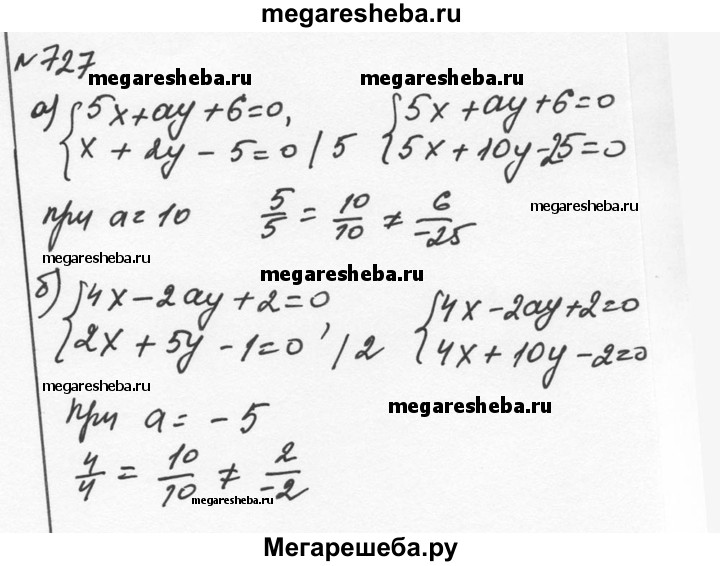 megaresheba.ru
№727
megaresheba.ru megaresheba.ru
а) { 5x+ay+6=0, { 5x+ay+6=0
x + 2y - 5=0 / 5 5x+10y-25=0
при a=10 5/5 = 10/10 ≠ 6/-25
megaresheba.ru
megaresheba.ru
megaresheba.ru
б) { 4x-2ay+2=0 { 4x-2ay+2=0
2x+5y-1=0, / 2 4x+10y-2=0
megaresheba.ru
при a= -5
megaresheba.ru
4/4 = 10/10 ≠ 2/-2
megaresheba.ru
Мегарешеба.ру